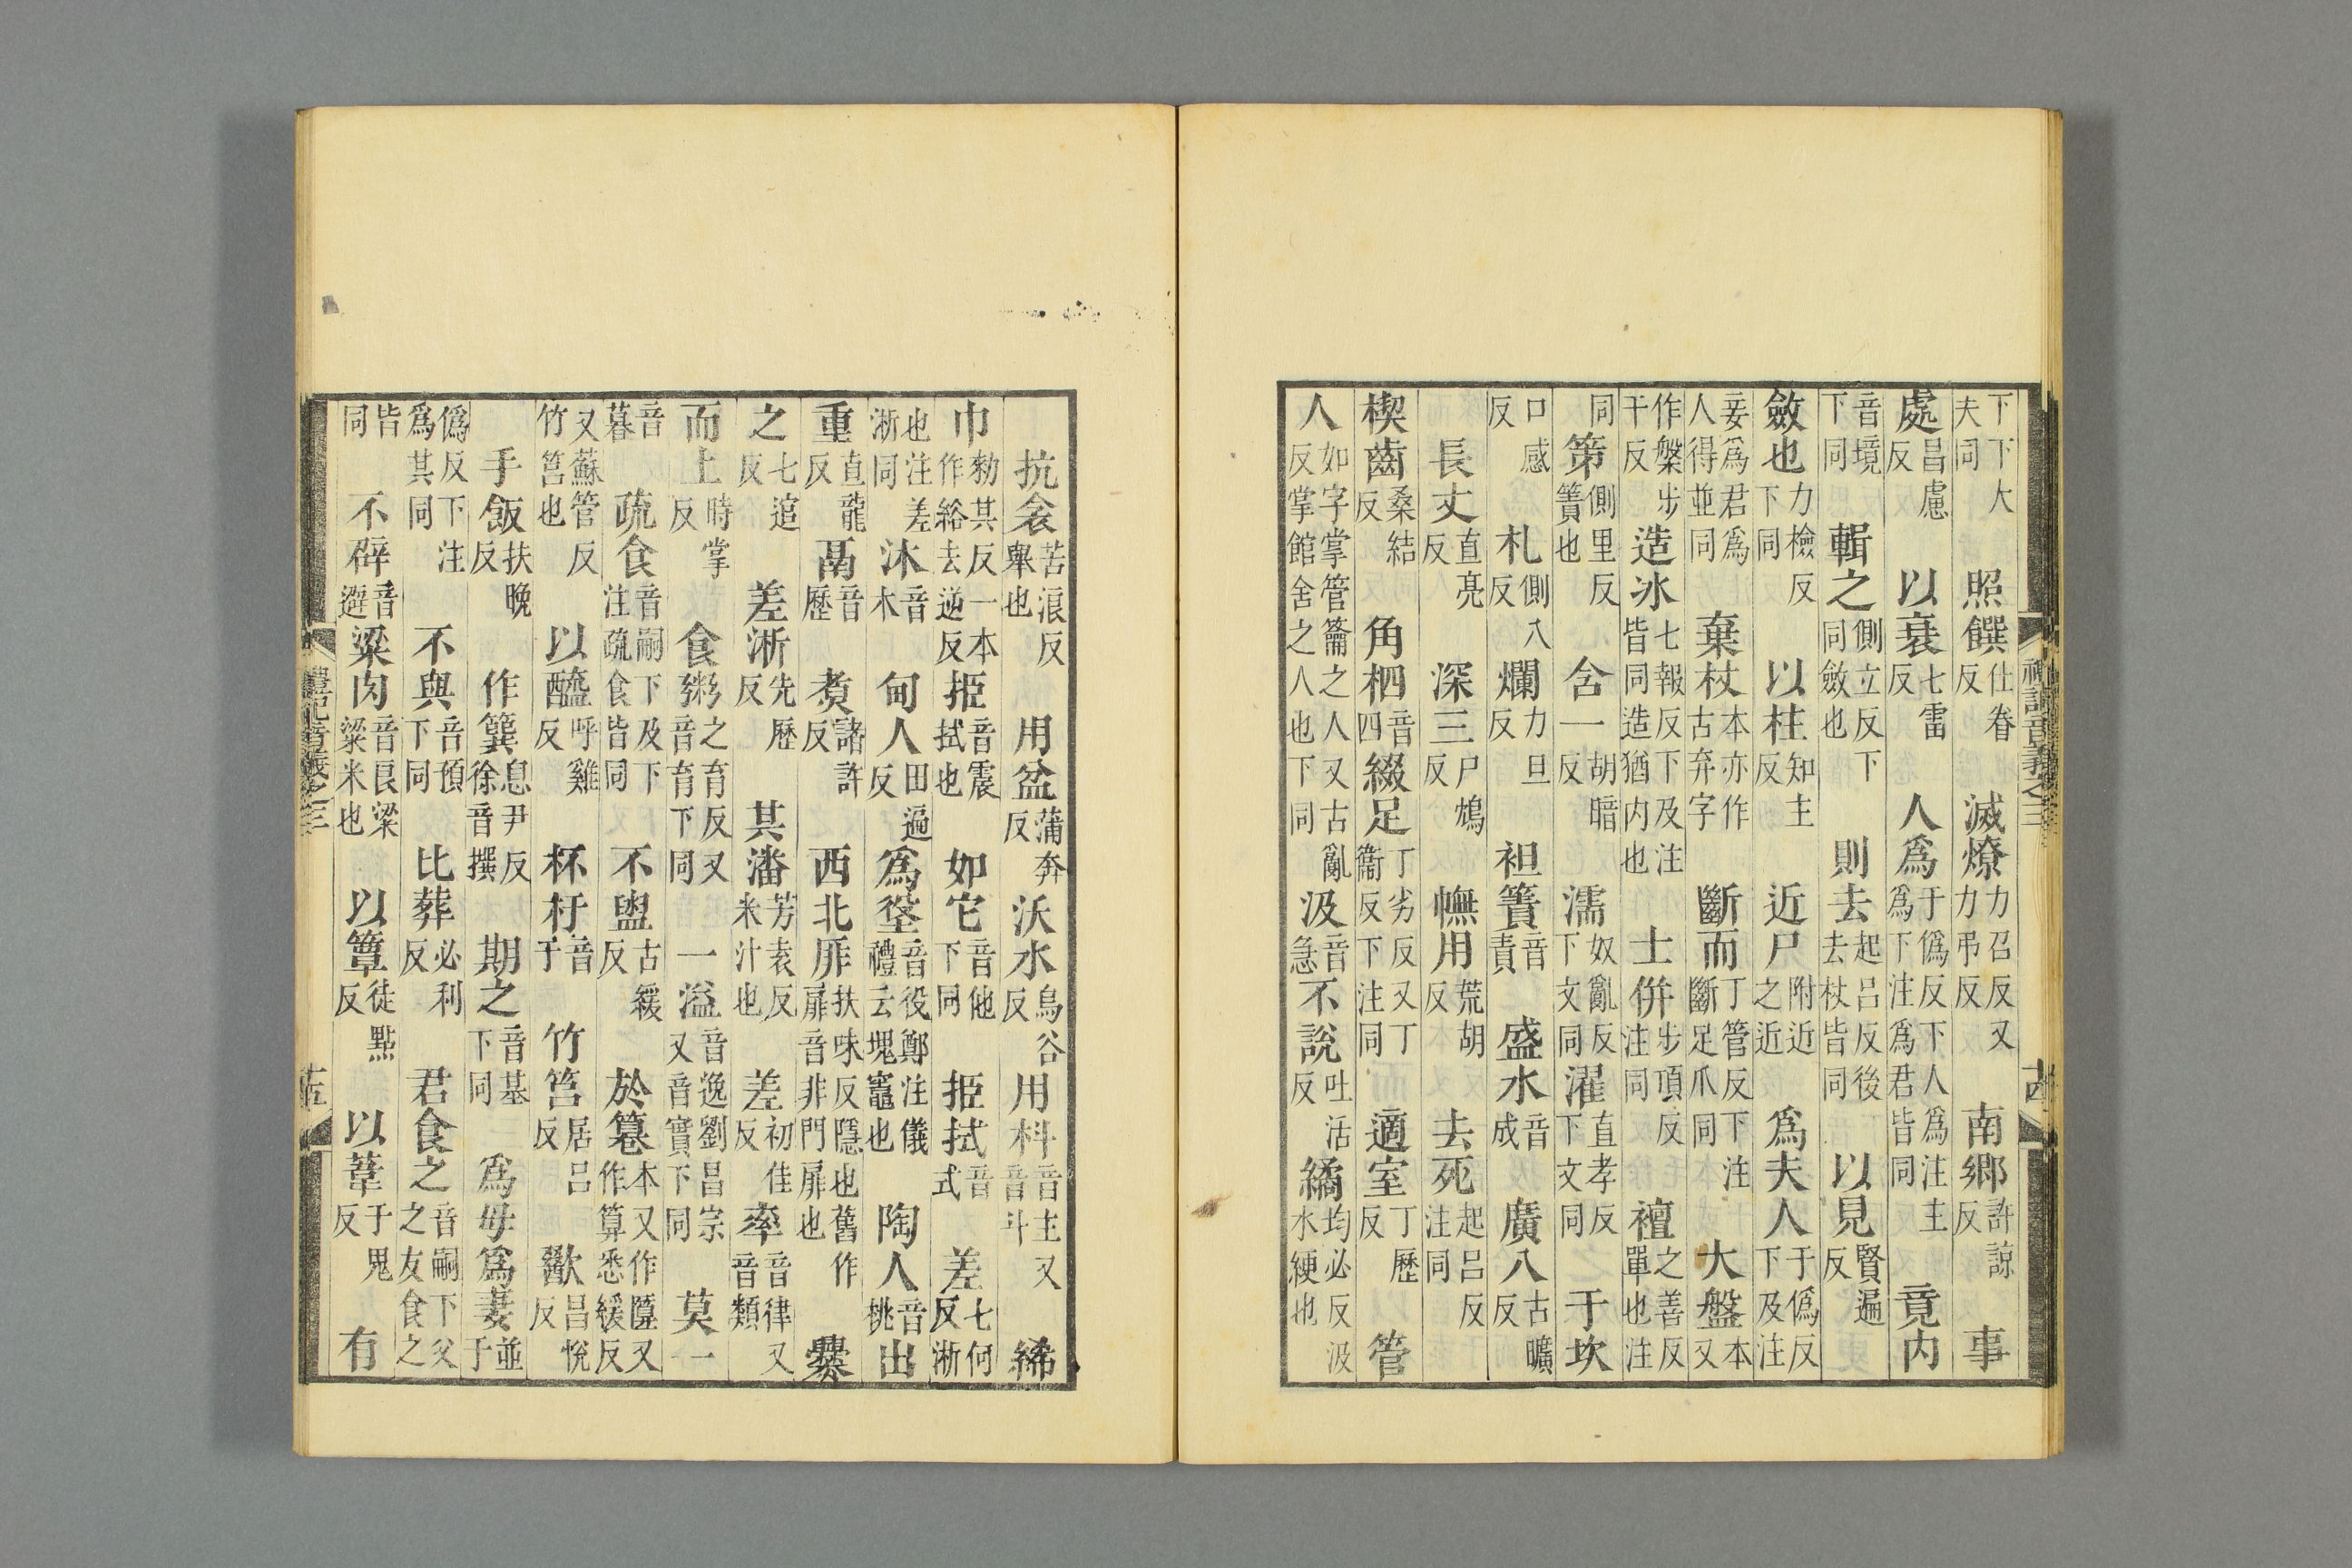 禮記音義之三 十四
下下大夫同照饌仕眷反滅燎力召反又力弔反南鄉許諒反事
處昌慮反以衰七雷反人爲于僞反下人爲注主爲下注爲君皆同竟内
音境下同輯之側立反下同斂也則去起呂反後去杖皆同以見賢遍反
斂也力檢反下同以柱知主反近尸附近之近爲夫人于僞反下及注
妾爲君爲人得並同棄杖本亦作古弃字斷而丁管反下注斷足爪同大盤本又
作槃步干反造冰七報反下及注皆同造猶内也士併步頂反注同襢之善反單也注
同第側里反簀也含一胡暗反濡奴亂反下文同濯直孝反下文同于坎
口感反札側八反爛力旦反袒簀音責盛水音成廣八古曠反
長丈直亮反深三尸鴆反幠用荒胡反去死起呂反注同
楔齒桑結反角柶音四綴足丁劣反又丁衞反下注同適室丁歷反管
人如字掌管籥之人又古亂反掌館舍之人也下同汲音急不說吐活反繘均必反汲水綆也
抗衾苦浪反舉也用盆蒲奔反沃水烏谷反用枓音主又音斗絺
巾勑其反一本作綌去逆反挋音震拭也如它音他下同挋拭音式差七何反淅
也注差淅同沐音木甸人田遍反爲垼音役鄭注儀禮云塊竈也陶人音桃出
重直龍反鬲音歷煑諸許反西北厞扶味反隱也舊作扉音非門扉也爨
之七逭反差淅先歷反其潘芳袁反米汁也差初佳反率音律又音類
而上時掌反食粥之育反又音育下同一溢音逸劉昌宗又音實下同莫一
音暮疏食音嗣下及下注疏食皆同不盥古緩反於篹本又作匴又作算悉緩反
又蘇管反竹筥也以醯呼雞反杯杅音于竹筥居呂反歠昌悅反
手飯扶晚反作簨息尹反徐音撰期之音基下同爲母爲妻並于
僞反下注爲其同不與音預下同比葬必利反君食之音嗣下父之友食之
皆同不辟音避粱肉音良粱粱米也以簟徒點反以葦于鬼反有
禮記音義之三 十五